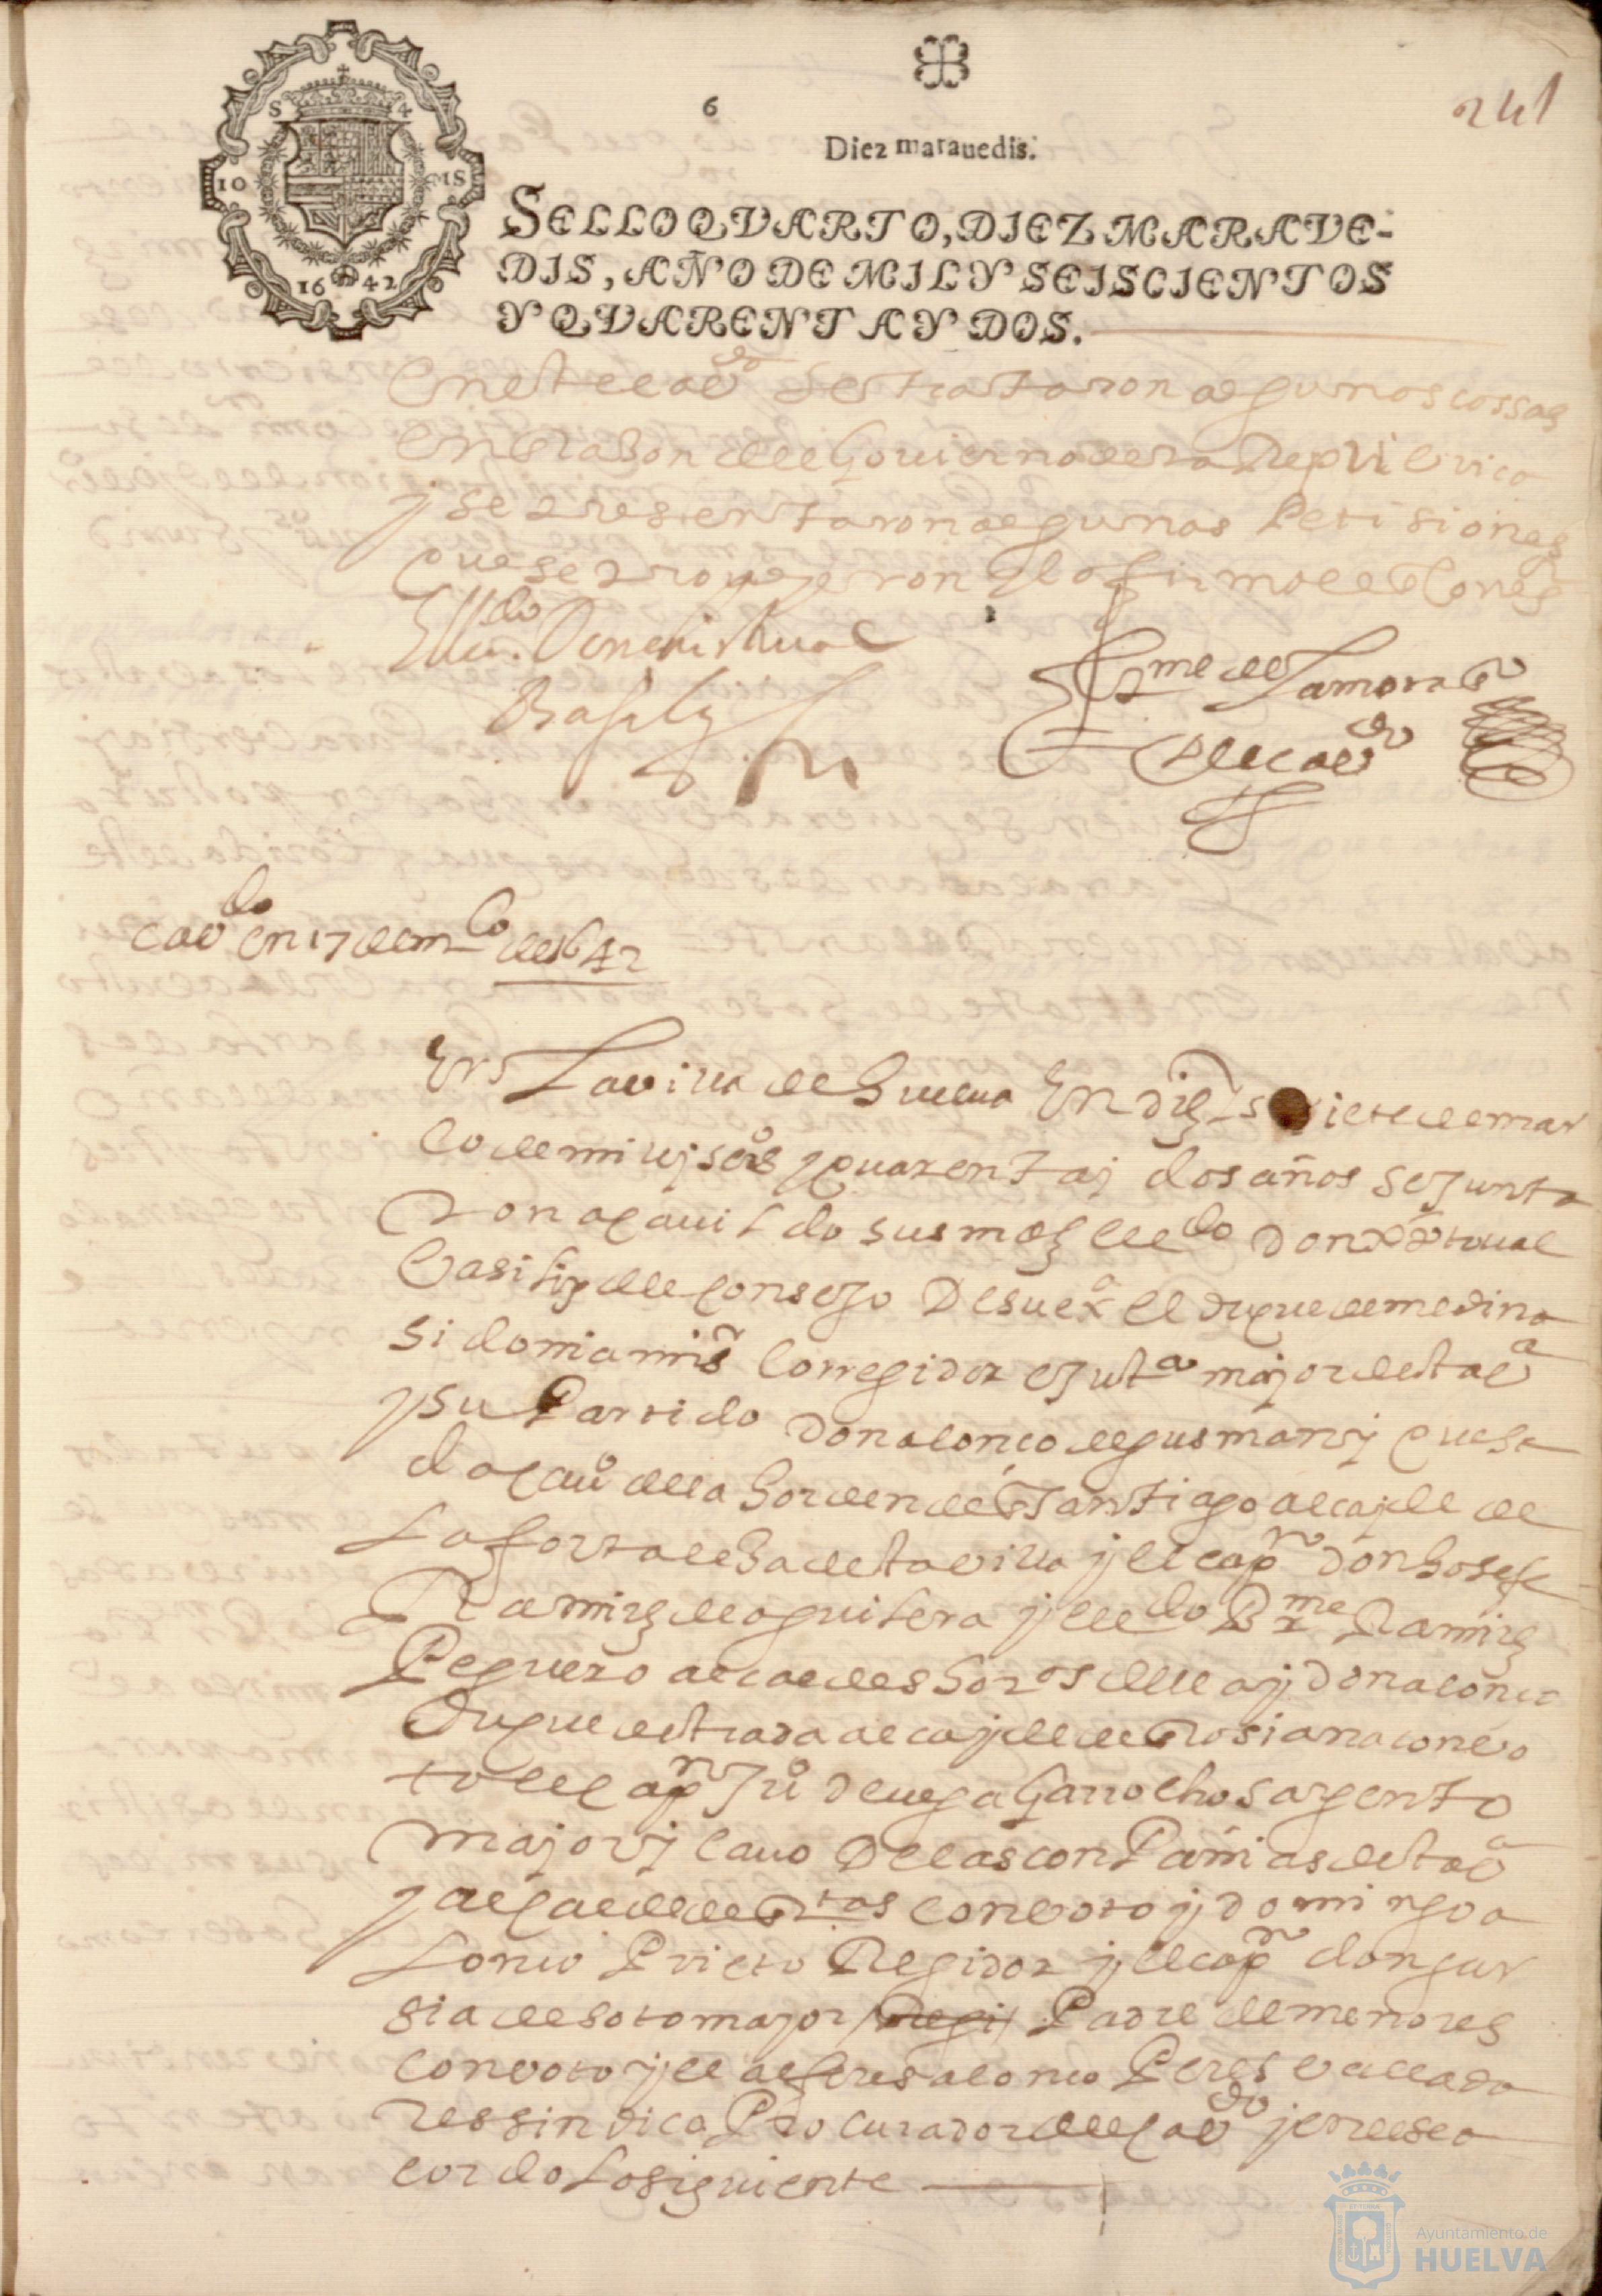 241
6
Diez marauedis.
S 4
10 MS
1642
SELLO QVARTO, DIEZ MARAVE-
DIS, AÑO DE MIL Y SEISCIENTOS
Y QVARENTA Y DOS.
En este cavdo se trataron algunas cossas
en rason del Govierno de la Republica
y se presentaron algunas Petisiones
que se proveyeron y lo firmo el Corregr
El Licdo Don Christoual
Basili
Bme de Zamora
del cavdo
cavdo en 17 de mço de 1642
En La villa de Huelua En diez y siete de mar
ço de mil y seisos y quarenta y dos años se junta
ron a cauildo sus mds el Ldo Don Xptoual
Basili del Consejo De su exa el duque de medina
sidonia mi sr Corregidor e justa mayor desta va
y su Partido Don alonso de gusman y quesa
da cauo de la horden de Santiago alcayde de
La fortalesa desta villa y el capn don Hosefe
Ramirz de aguilera y el Ldo Bme Ramirz
Peguero alcaldes horos della y don alonso
Duque destrada alcayde de Rosiana con vo
to el capn Juo de uega Garrocho sargento
mayor y cauo De las conPañias desta va
y alcalde de con voto y domingo a
Lonso Prieto Regidor y el capn don gar
sia de sotomayor regi Padre de menores
con voto y el alferes alonso Peres vallada
res sindico Procurador del cavdo y en el se a
cordo Lo siguiente
Ayuntamiento de
HUELVA